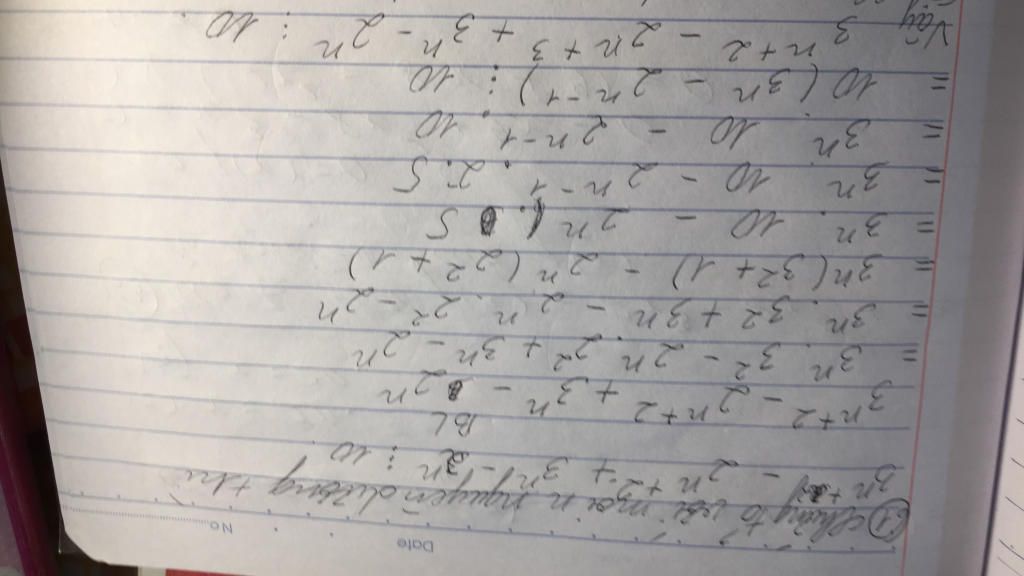 Date
No.
① Chứng tỏ với mọi n nguyên dương thì
3ⁿ⁺² - 2ⁿ⁺² + 3ⁿ - 2ⁿ ⋮ 10
BL
3ⁿ⁺² - 2ⁿ⁺² + 3ⁿ - 2ⁿ
= 3ⁿ . 3² - 2ⁿ . 2² + 3ⁿ - 2ⁿ
= 3ⁿ . 3² + 3ⁿ - 2ⁿ . 2² - 2ⁿ
= 3ⁿ (3² + 1) - 2ⁿ (2² + 1)
= 3ⁿ . 10 - 2ⁿ . 5
= 3ⁿ . 10 - 2ⁿ⁻¹ . 2.5
= 3ⁿ . 10 - 2ⁿ⁻¹ . 10
= 10 (3ⁿ - 2ⁿ⁻¹) ⋮ 10
Vậy 3ⁿ⁺² - 2ⁿ⁺³ + 3ⁿ - 2ⁿ ⋮ 10